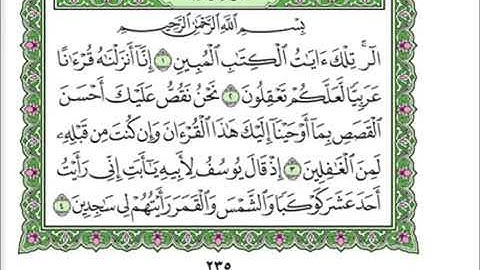 بِسْمِ ٱللَّهِ ٱلرَّحْمَٰنِ ٱلرَّحِيمِ
الٓر ۚ تِلْكَ ءَايَٰتُ ٱلْكِتَٰبِ ٱلْمُبِينِ ١ إِنَّآ أَنزَلْنَٰهُ قُرْءَٰنًا
عَرَبِيًّا لَّعَلَّكُمْ تَعْقِلُونَ ٢ نَحْنُ نَقُصُّ عَلَيْكَ أَحْسَنَ
ٱلْقَصَصِ بِمَآ أَوْحَيْنَآ إِلَيْكَ هَٰذَا ٱلْقُرْءَانَ وَإِن كُنتَ مِن قَبْلِهِۦ
لَمِنَ ٱلْغَٰفِلِينَ ٣ إِذْ قَالَ يُوسُفُ لِأَبِيهِ يَٰٓأَبَتِ إِنِّى رَأَيْتُ
أَحَدَ عَشَرَ كَوْكَبًا وَٱلشَّمْسَ وَٱلْقَمَرَ رَأَيْتُهُمْ لِى سَٰجِدِينَ ٤
٢٣٥